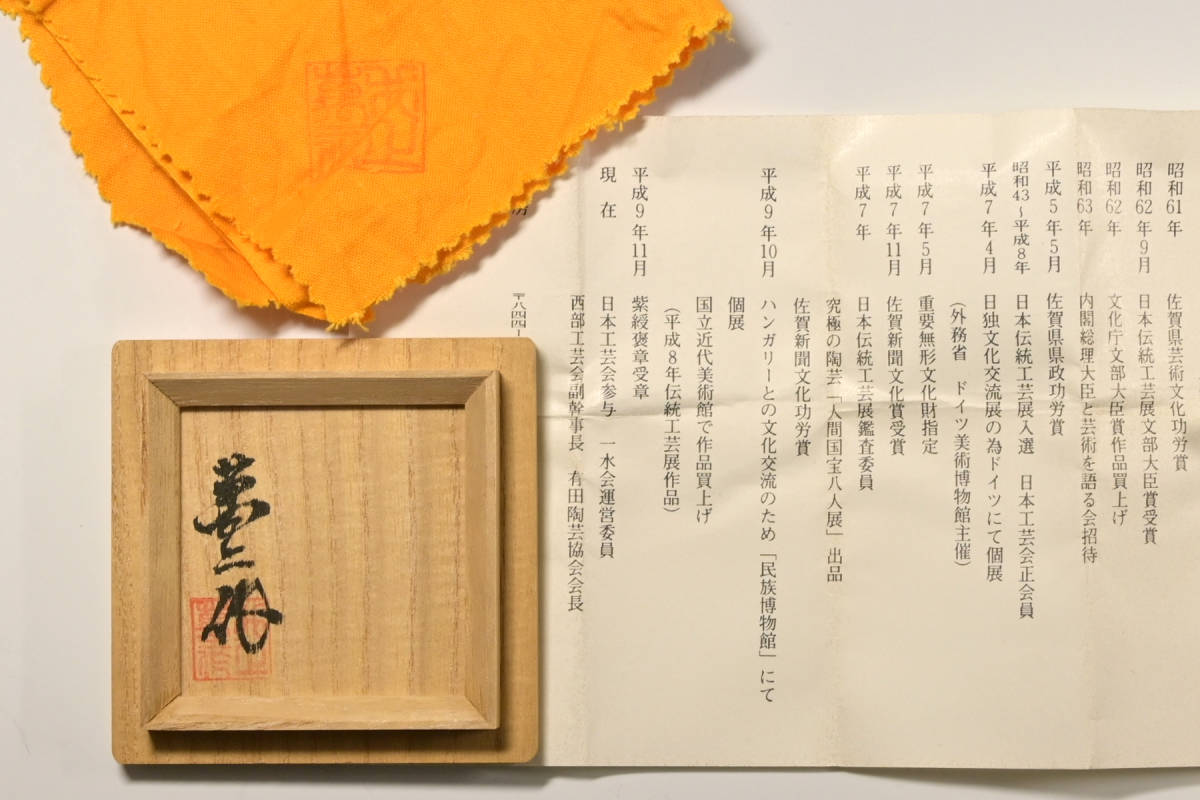 昭和61年　佐賀県芸術文化功労賞
昭和62年9月　日本伝統工芸展文部大臣賞受賞
昭和62年　文化庁文部大臣賞作品買上げ
昭和63年　内閣総理大臣と芸術を語る会招待
平成5年5月　佐賀県県政功労賞
昭和43～平成8年　日本伝統工芸展入選　日本工芸会正会員
平成7年4月　日独文化交流展の為ドイツにて個展
（外務省　ドイツ美術博物館主催）
平成7年5月　重要無形文化財指定
平成7年11月　佐賀新聞文化賞受賞
平成7年　日本伝統工芸展鑑査委員
究極の陶芸「人間国宝八人展」出品
佐賀新聞文化功労賞
平成9年10月　ハンガリーとの文化交流のため「民族博物館」にて
個展
国立近代美術館で作品買上げ
（平成8年伝統工芸展作品）
平成9年11月　紫綬褒章受章
現在　日本工芸会参与　一水会運営委員
西部工芸会副幹事長　有田陶芸協会会長
〒八四四